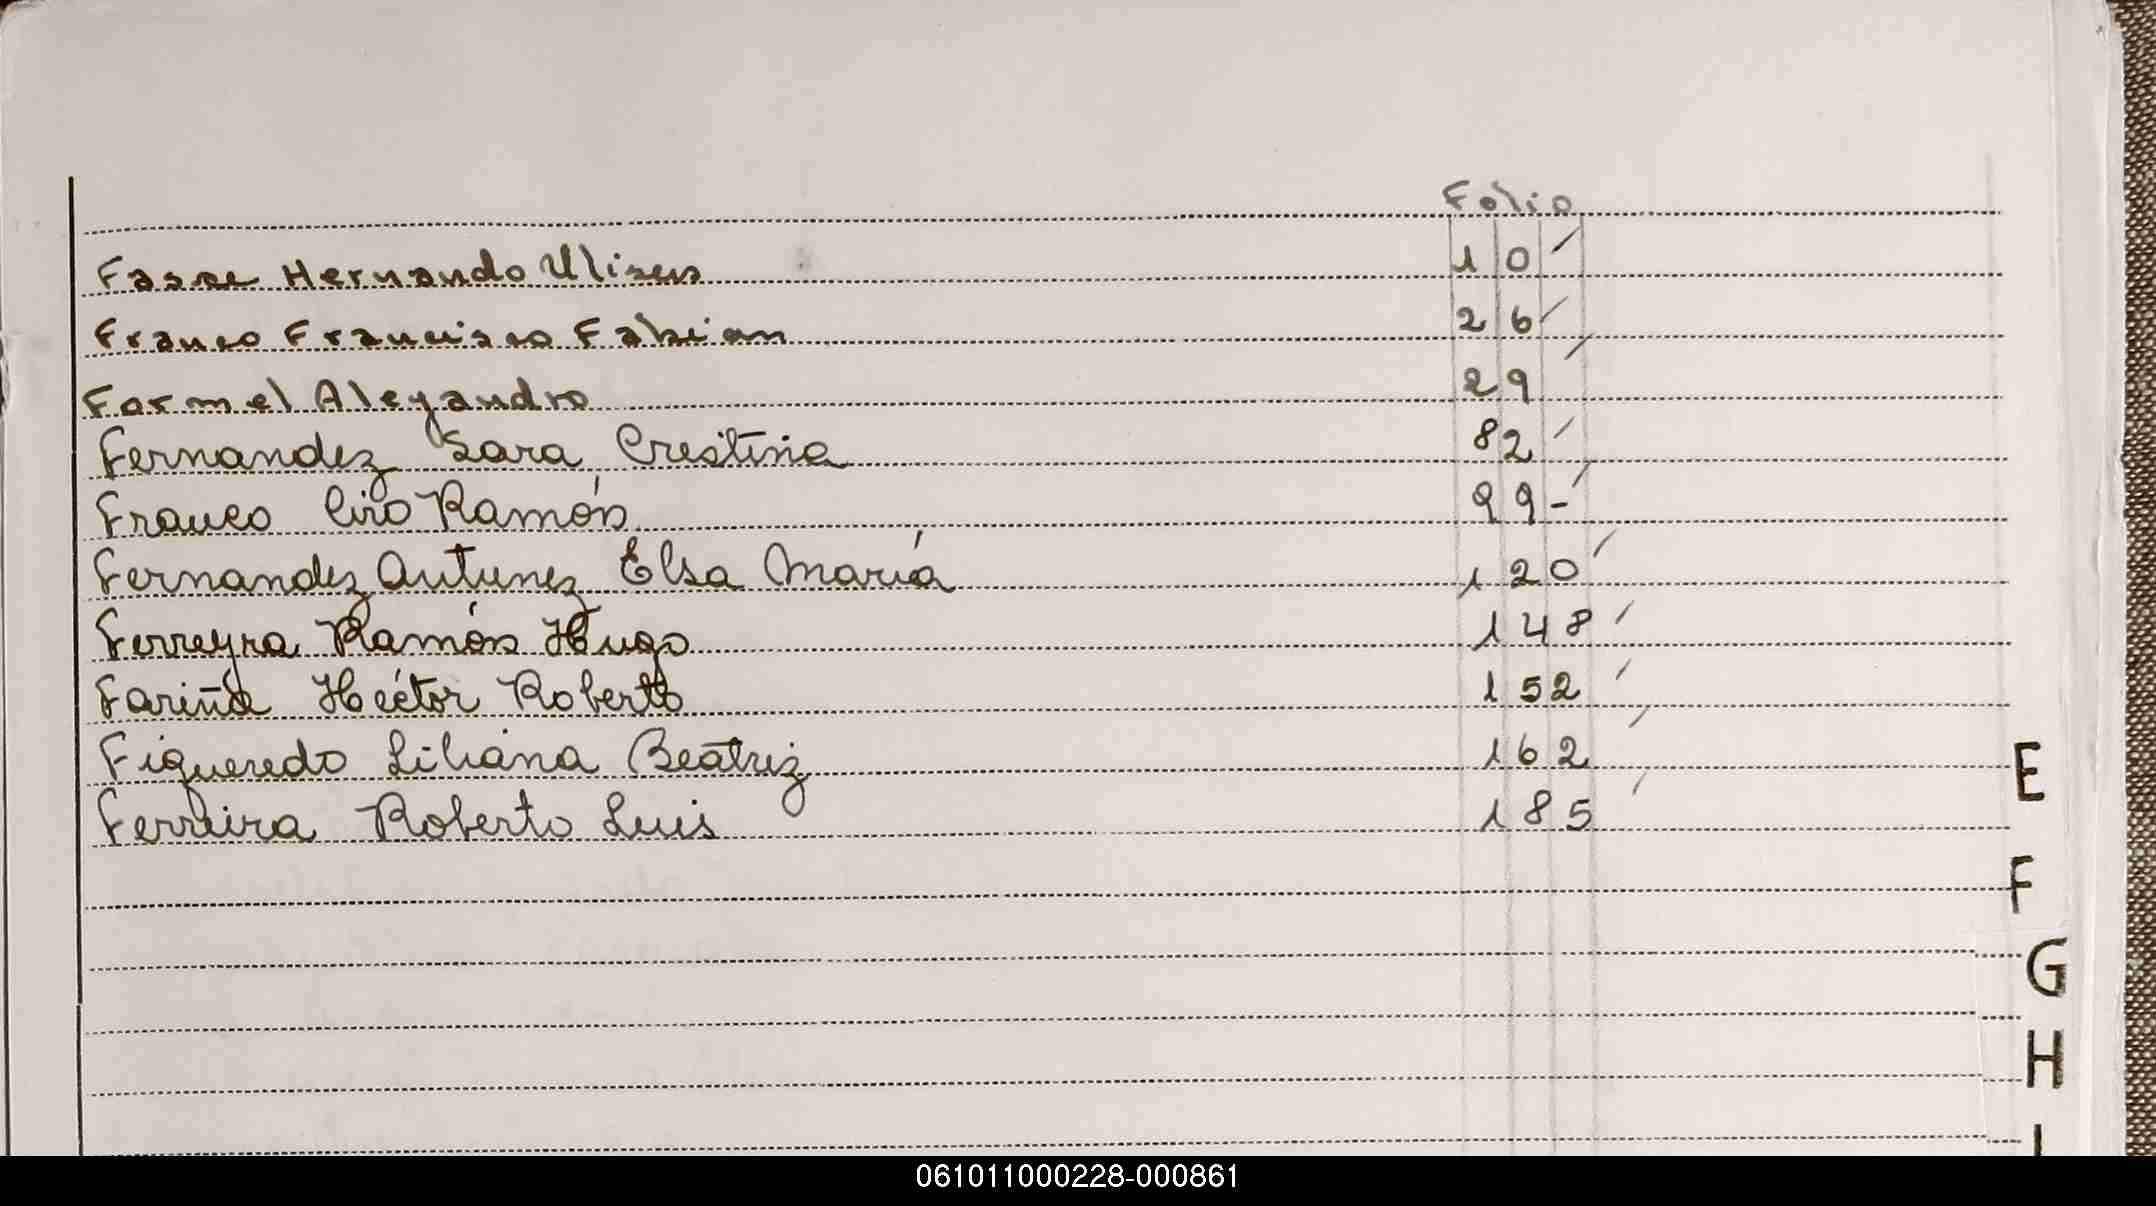 Folio
Fasse Hernando Ulises 10
Franco Francisco Fabian 26
Formel Aleyandro 29
Fernandez Sara Crestina 82
Franco Ciro Ramón 99-
Fernandez Antunez Elsa María 120
Ferreyra Ramón Hugo 148
Fariña Héctor Roberto 152
Figueredo Liliana Beatriz 162
Ferreira Roberto Luis 185
E
F
G
H
I
061011000228-000861